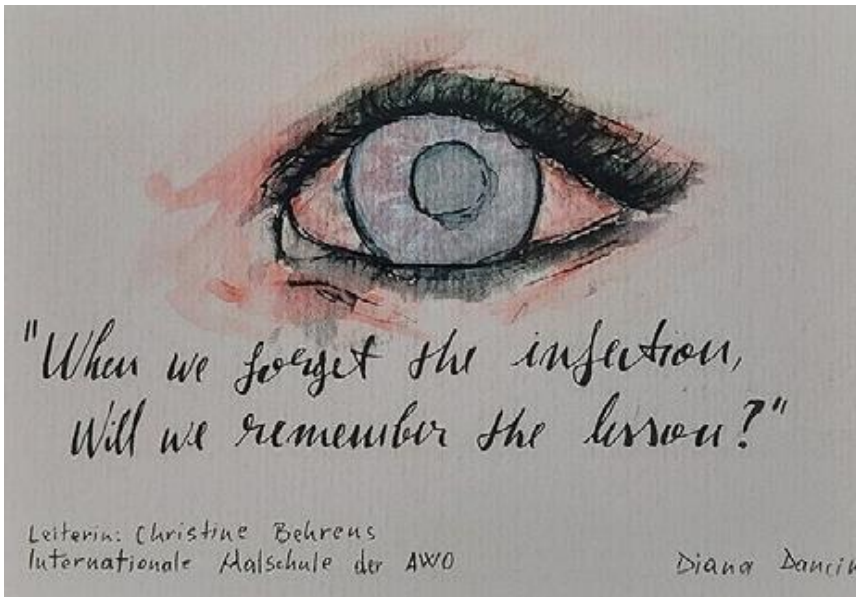 "When we forget the infection,
Will we remember the lesson?"
Leiterin: Christine Behrens
Internationale Malschule der AWO
Diana Dancin